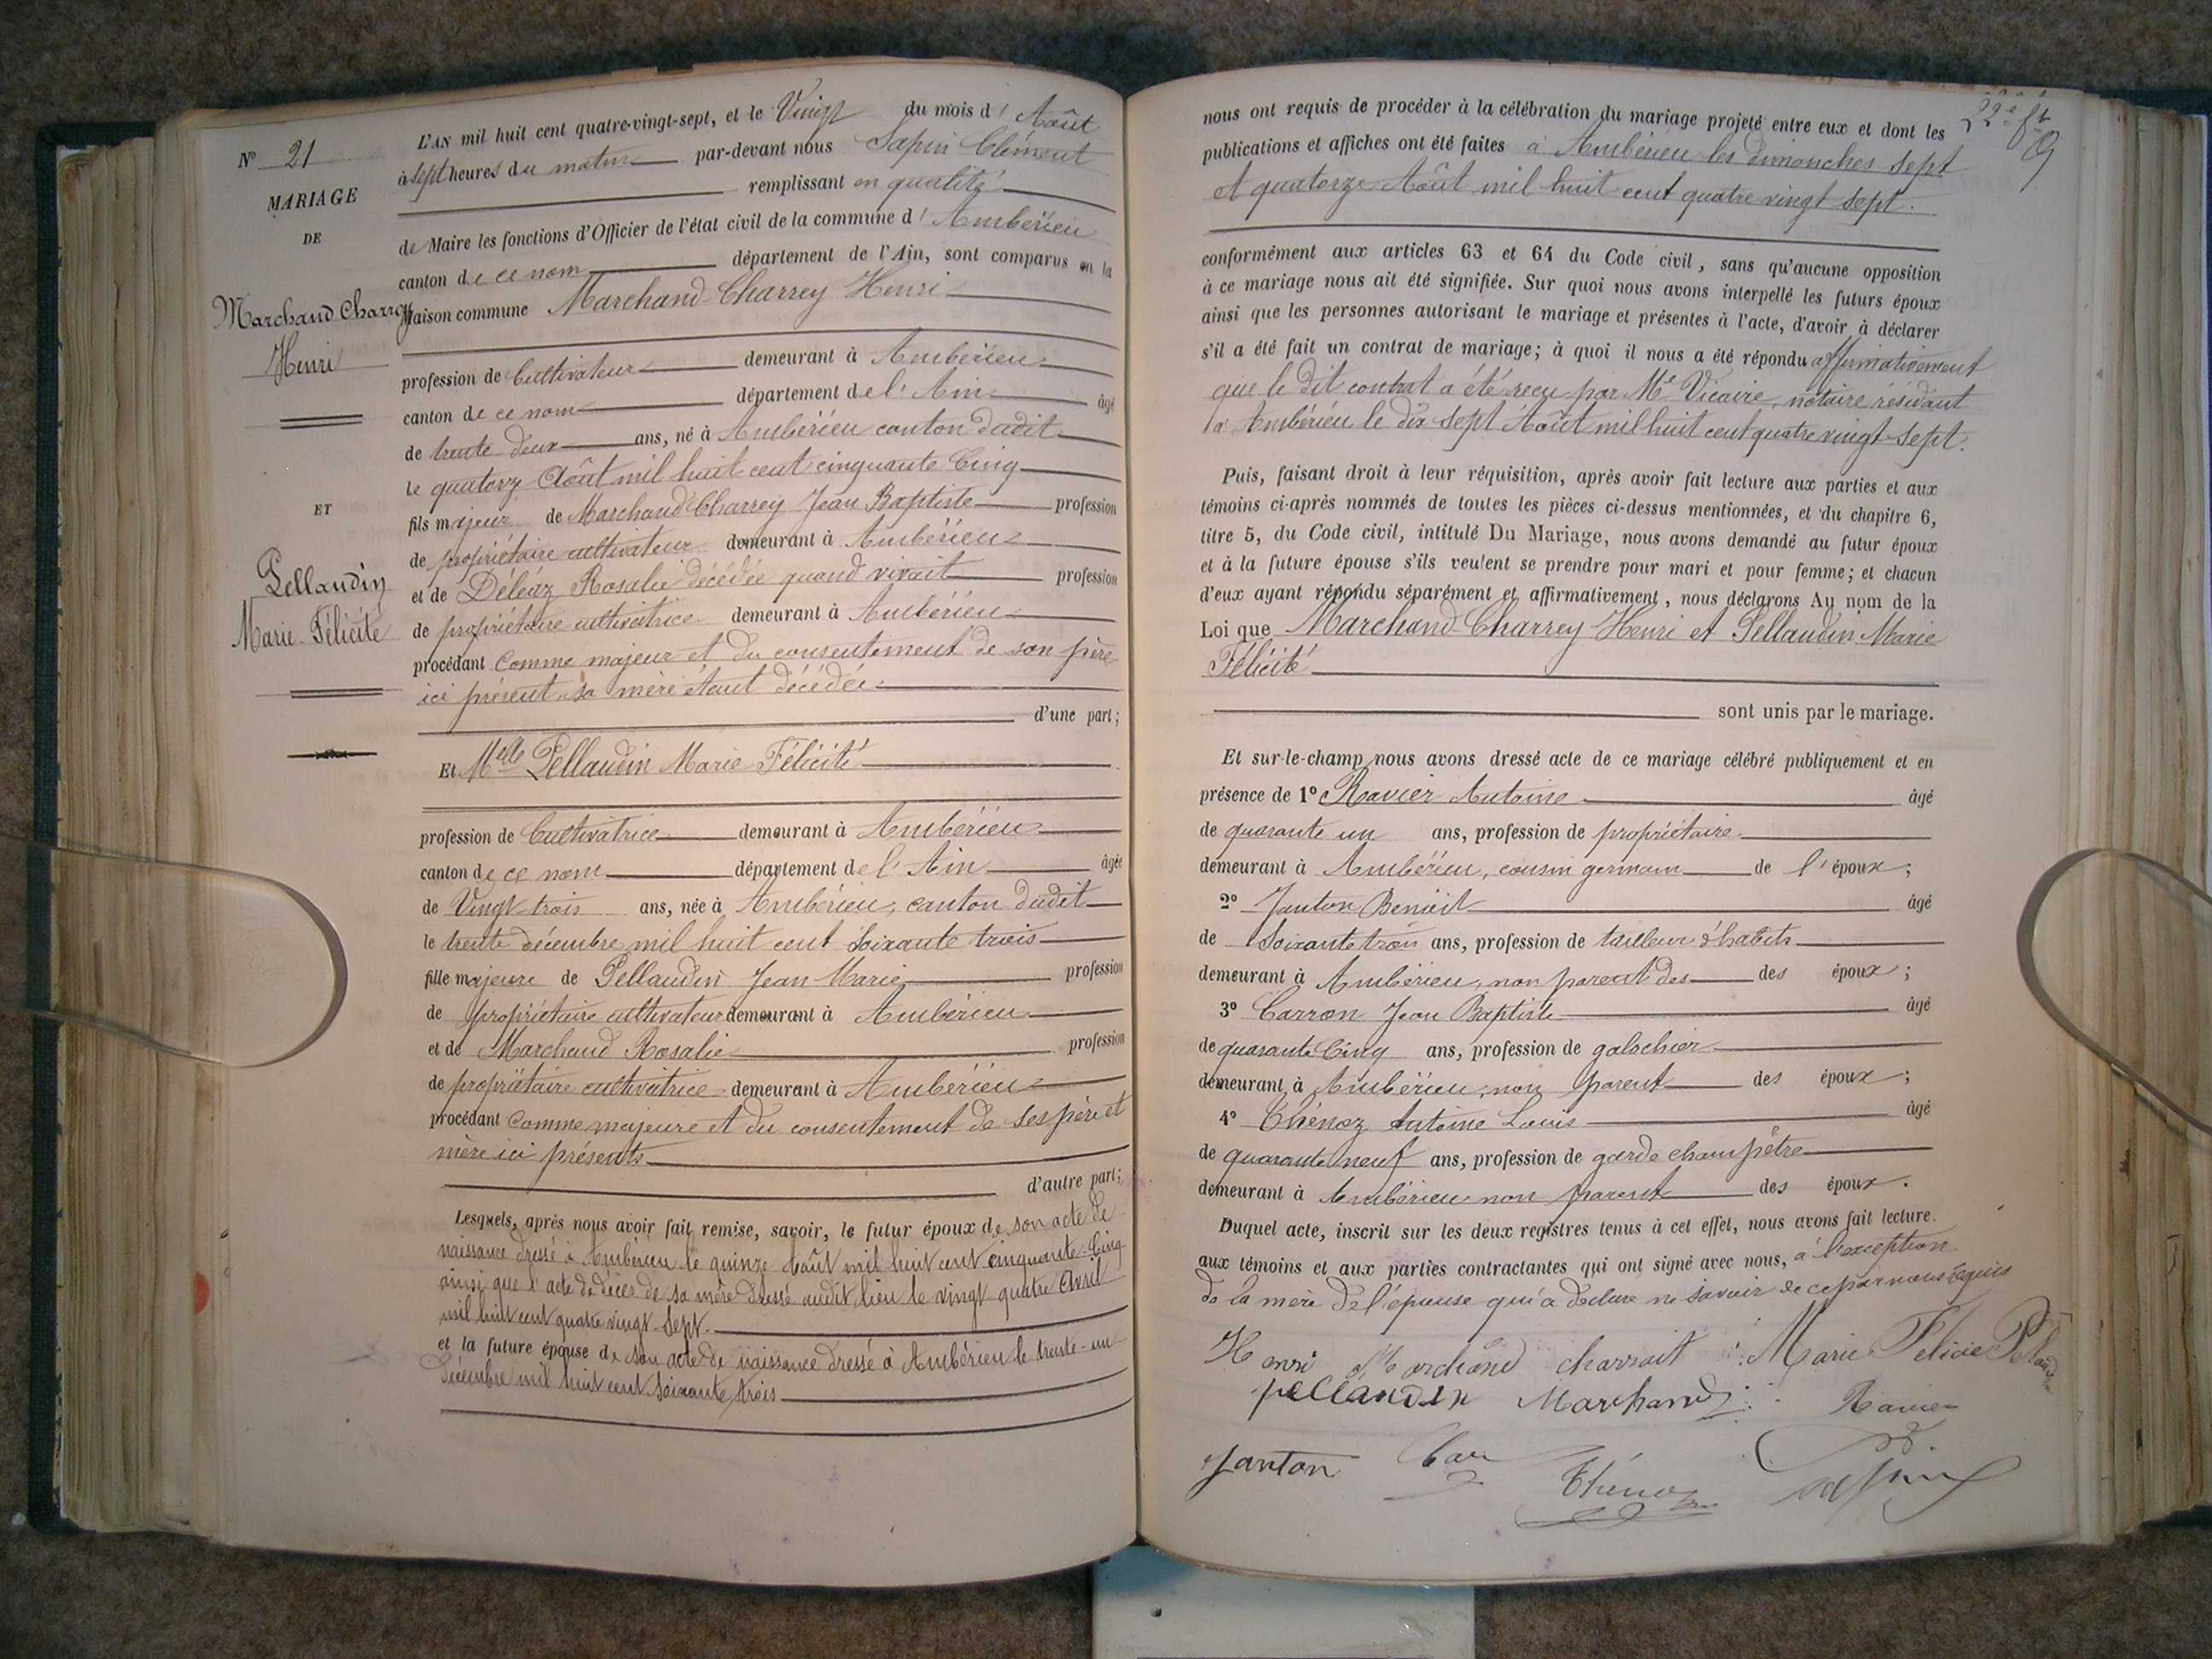 N° 21
MARIAGE
DE
Marchand Charrey
Henri
ET
Pellaudin
Marie Félicité
L'AN mil huit cent quatre-vingt-sept, et le Vingt du mois d'Août
à sept heures du matin par-devant nous Sapin Clément
remplissant en qualité
de Maire les fonctions d'Officier de l'état civil de la commune d'Ambérieu
canton de ce nom département de l'Ain, sont comparus en la
maison commune Marchand-Charrey Henri
profession de Cultivateur demeurant à Ambérieu
canton de ce nom département de l'Ain âgé
de trente deux ans, né à Ambérieu canton dudit
le quatorz Août mil huit cent cinquante Cinq
fils majeur de Marchand Charrey Jean Baptiste profession
de propriétaire cultivateur demeurant à Ambérieu
et de Déléaz Rosalie décédée quand vivait profession
de propriétaire cultivatrice demeurant à Ambérieu
procédant Comme majeur et du consentement de son père
ici présent, sa mère étant décédée
d'une part;
Et Melle Pellaudin Marie Félicité
profession de Cultivatrice demeurant à Ambérieu
canton de ce nom département de l'Ain âgée
de Vingt trois ans, née à Ambérieu, canton dudit
le trente décembre mil huit cent soixante trois
fille majeure de Pellaudin Jean Marie profession
de propriétaire cultivateur demeurant à Ambérieu
et de Marchand Rosalie profession
de propriétaire cultivatrice demeurant à Ambérieu
procédant Comme majeure et du consentement de ses père et
mère ici présents
d'autre part;
Lesquels, après nous avoir fait remise, savoir, le futur époux de son acte de
naissance dressé à Ambérieu le quinze Août mil huit cent cinquante-Cinq
ainsi que l'acte de décès de sa mère dressé audit lieu le vingt quatre Avril
mil huit cent quatre vingt-sept.
et la future épouse de son acte de naissance dressé à Ambérieu le trente-un
décembre mil huit cent soixante trois
nous ont requis de procéder à la célébration du mariage projeté entre eux et dont les
publications et affiches ont été faites à Ambérieu les dimanches sept
et quatorze Août mil huit cent quatre vingt sept.
conformément aux articles 63 et 64 du Code civil, sans qu'aucune opposition
à ce mariage nous ait été signifiée. Sur quoi nous avons interpellé les futurs époux
ainsi que les personnes autorisant le mariage et présentes à l'acte, d'avoir à déclarer
s'il a été fait un contrat de mariage; à quoi il nous a été répondu affirmativement
que le dit contrat a été reçu par Me Vicaire, notaire résidant
à Ambérieu le dix sept Août mil huit cent quatre vingt-sept.
Puis, faisant droit à leur réquisition, après avoir fait lecture aux parties et aux
témoins ci-après nommés de toutes les pièces ci-dessus mentionnées, et du chapitre 6,
titre 5, du Code civil, intitulé Du Mariage, nous avons demandé au futur époux
et à la future épouse s'ils veulent se prendre pour mari et pour femme; et chacun
d'eux ayant répondu séparément et affirmativement, nous déclarons Au nom de la
Loi que Marchand-Charrey Henri et Pellaudin Marie
Félicité
sont unis par le mariage.
Et sur-le-champ nous avons dressé acte de ce mariage célébré publiquement et en
présence de 1° Ravier Antoine âgé
de quarante un ans, profession de propriétaire
demeurant à Ambérieu, cousin germain de l'époux;
2° Janton Benoit âgé
de soixante trois ans, profession de tailleur d'habits
demeurant à Ambérieu, non parent des des époux;
3° Carron Jean Baptiste âgé
de quarante Cinq ans, profession de galochier
demeurant à Ambérieu, non parent des époux;
4° Thénoz Antoine Louis âgé
de quarante neuf ans, profession de garde champêtre
demeurant à Ambérieu non parent des époux.
Duquel acte, inscrit sur les deux registres tenus à cet effet, nous avons fait lecture
aux témoins et aux parties contractantes qui ont signé avec nous, à l'exception
de la mère de l'épouse qui a déclaré ne savoir de ce par nous requis
Henri Marchand charrait Marie Félicie
pellaudin Marchand Ravier
Janton Car Thénoz Sapin